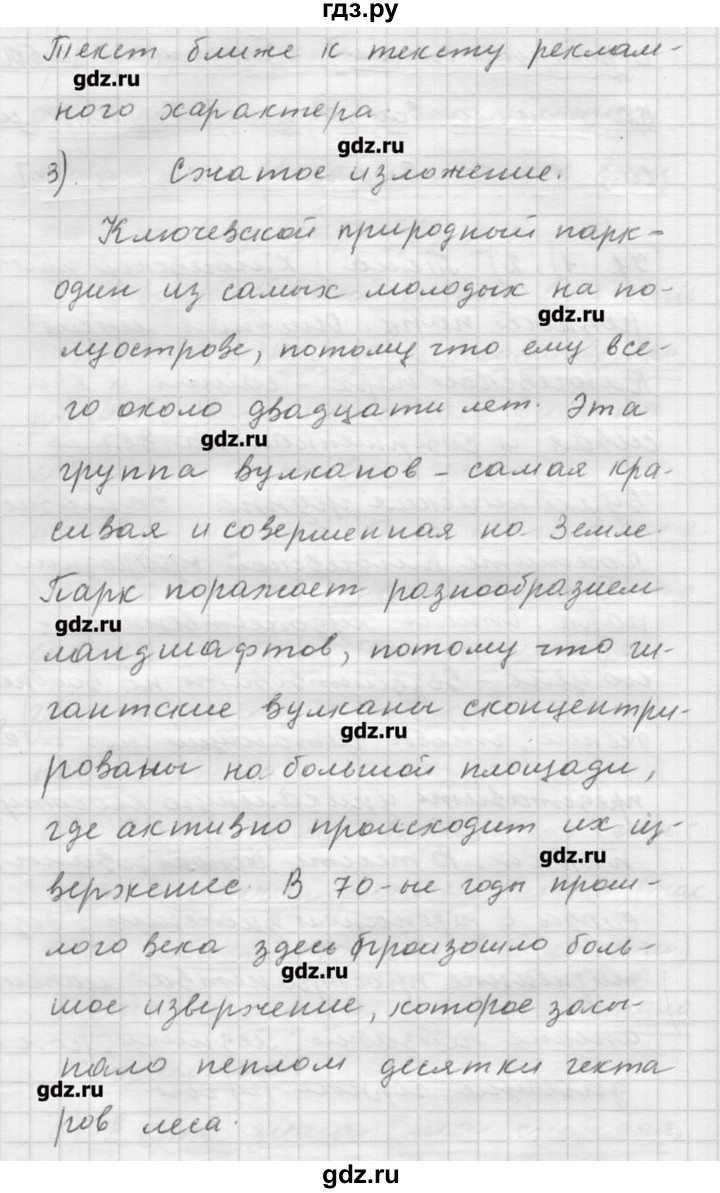 гдз.ру
Текст ближе к тексту реклам-
gdz.ru
ного характера.
gdz.ru
3). Сжатое изложение.
Ключевской природный парк -
один из самых молодых на по-
gdz.ru
луострове, потому что ему все-
го около двадцати лет. Эта
gdz.ru
группа вулканов - самая кра-
сивая и совершенная на Земле.
Парк поражает разнообразием
gdz.ru
ландшафтов, потому что ги-
гантские вулканы сконцентри-
gdz.ru
рованы на большой площади,
где активно происходит их из-
gdz.ru
вержение. В 70-ые годы прош-
лого века здесь произошло боль-
gdz.ru
шое извержение, которое засы-
пало пеплом десятки гекта
gdz.ru
ров леса.
gdz.ru